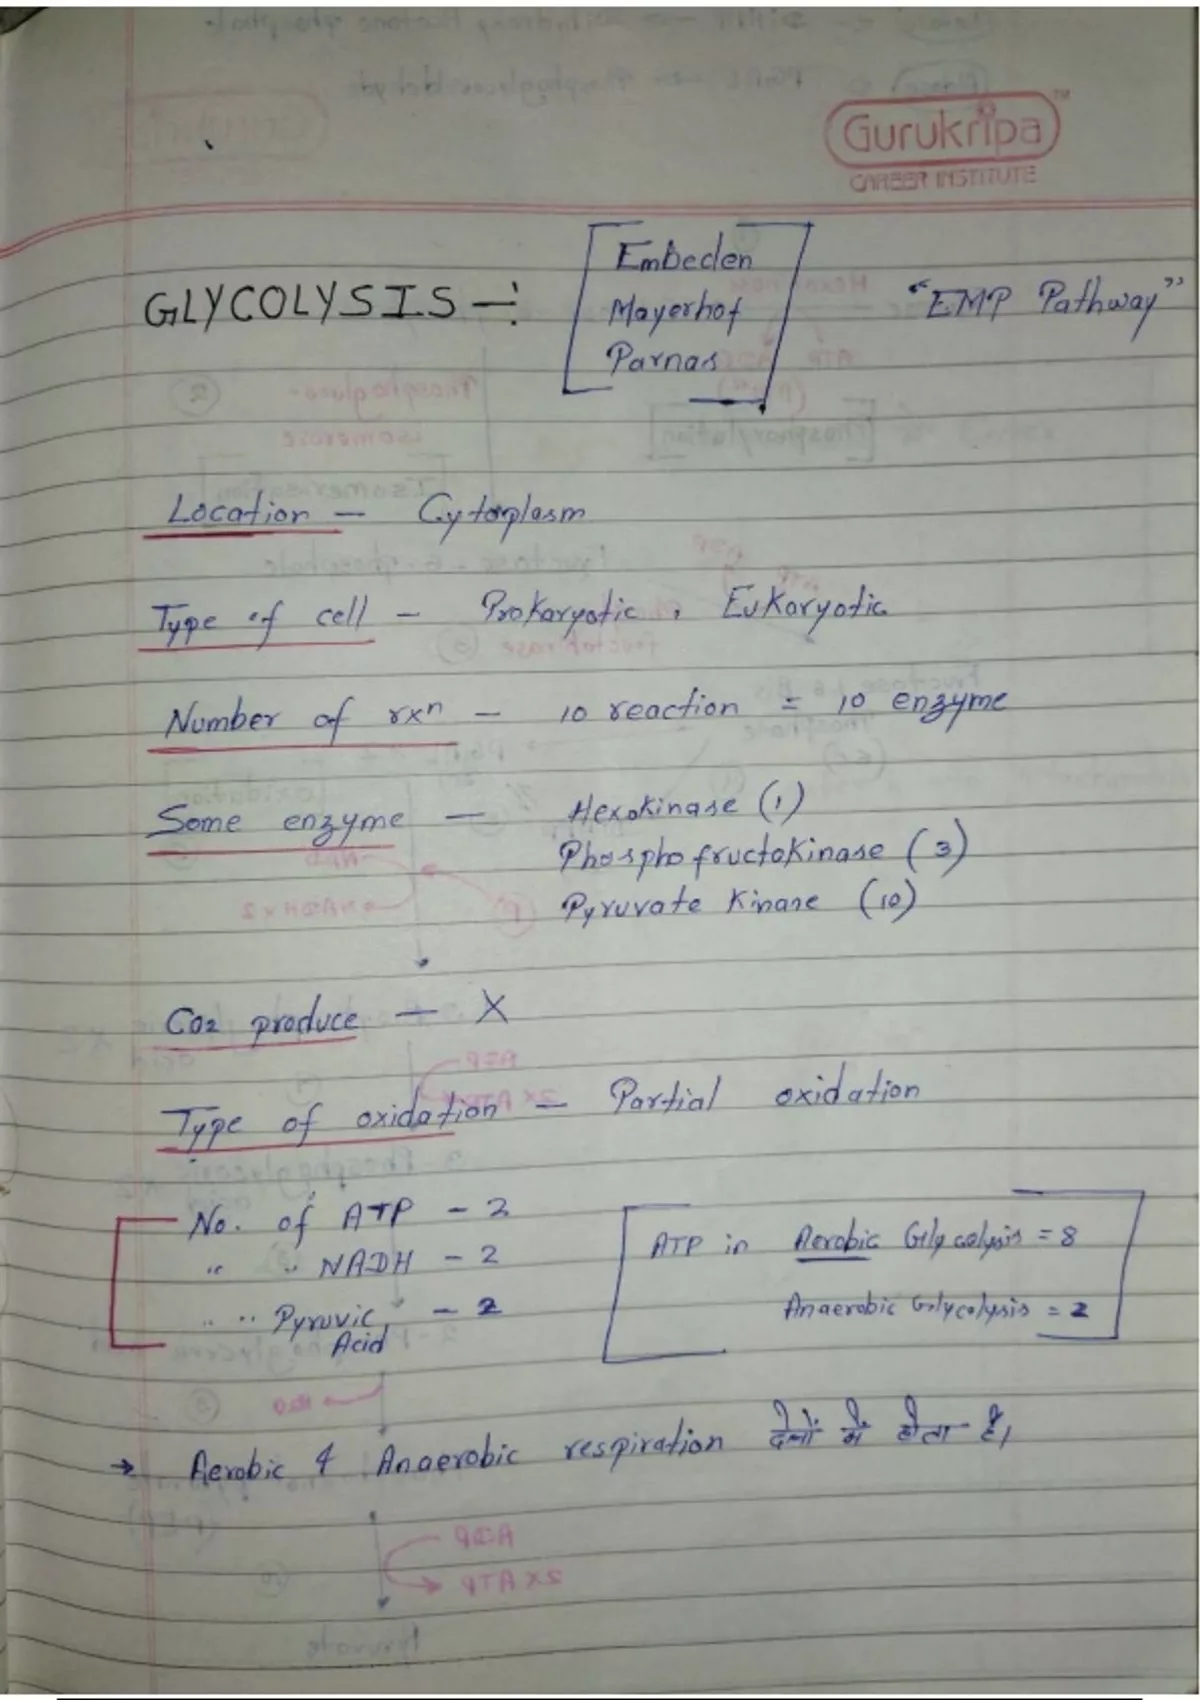 Gurukripa
TM
CAREER INSTITUTE
GLYCOLYSIS -:
Embeden
Mayerhof
Parnas
"EMP Pathway"
Location - Cytoplasm
Type of cell - Prokaryotic, Eukaryotic
Number of rxn - 10 reaction = 10 enzyme
Some enzyme - Hexokinase (1)
Phosphofructokinase (3)
Pyruvate Kinase (10)
CO2 produce - X
Type of oxidation - Partial oxidation
No. of ATP - 2
" " NADH - 2
" " Pyruvic Acid - 2
ATP in Aerobic Glycolysis = 8
Anaerobic Glycolysis = 2
→ Aerobic & Anaerobic respiration दोनों में होता है।